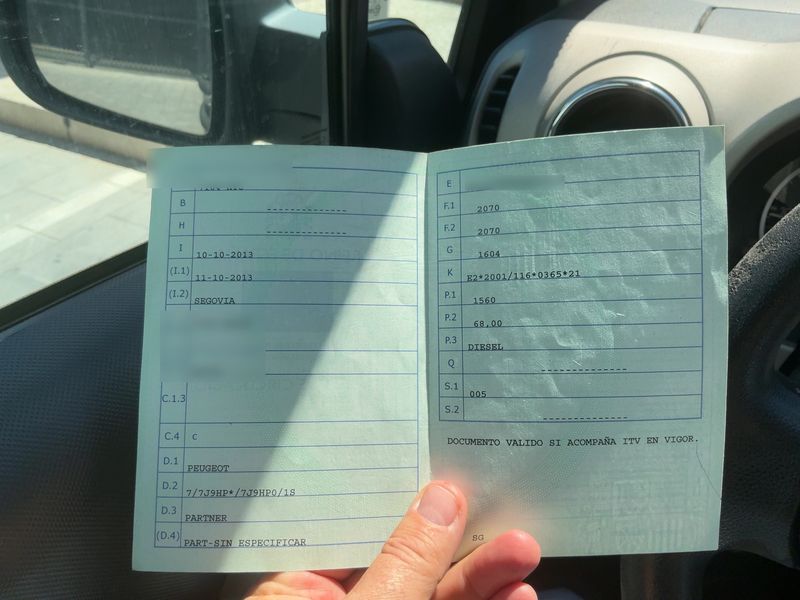 B
H
I 10-10-2013
(I.1) 11-10-2013
(I.2) SEGOVIA
C.1.3
C.4 C
D.1 PEUGEOT
D.2 7/7J9HP*/7J9HP0/1S
D.3 PARTNER
(D.4) PART-SIN ESPECIFICAR
E
F.1 2070
F.2 2070
G 1604
K E2*2001/116*0365*21
P.1 1560
P.2 68,00
P.3 DIESEL
Q
S.1 005
S.2
DOCUMENTO VALIDO SI ACOMPAÑA ITV EN VIGOR.
SG